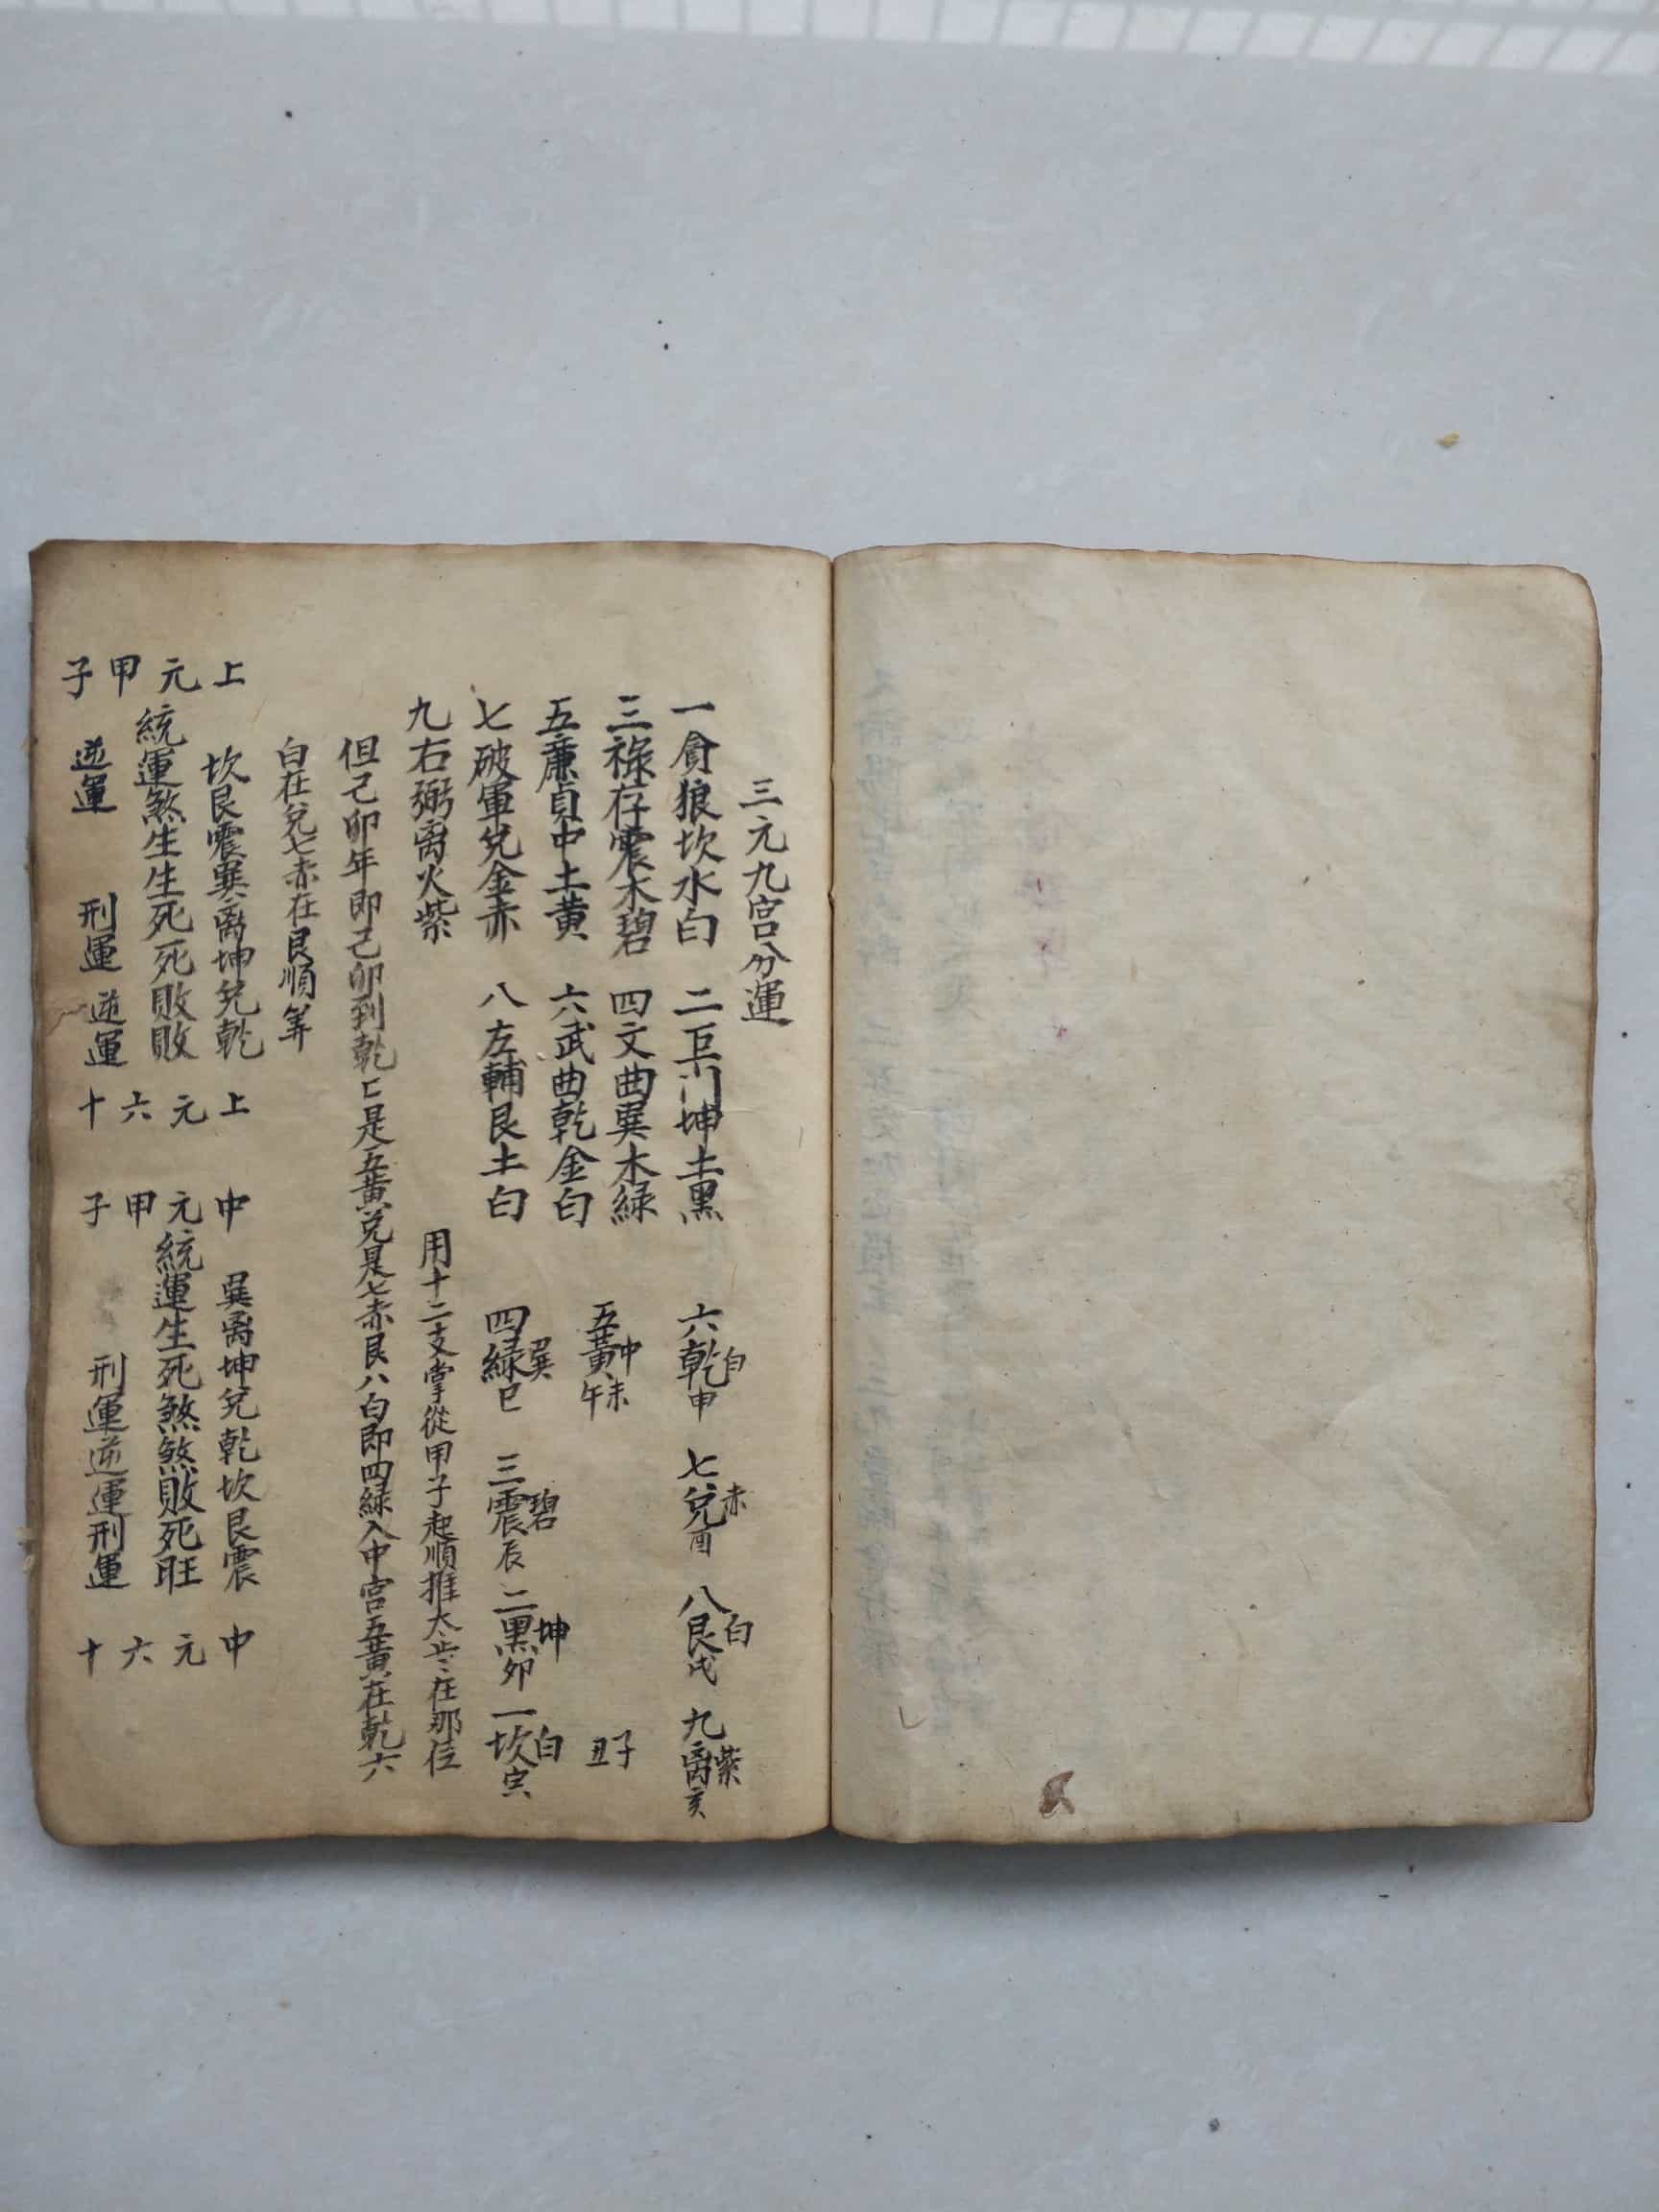 三元九宮分運
一貪狼坎水白 二巨門坤土黑 六乾白申 七兌赤酉 八艮白戌 九離紫亥
三祿存震木碧 四文曲巽木綠
五廉貞中土黃 六武曲乾金白 五黃中午未 子丑
七破軍兌金赤 八左輔艮土白 四綠巽巳 三震碧辰 二黑坤卯 一坎白寅
九右弼离火紫 用十二支掌從甲子起順推太歲在那位
但己卯年即己卯到乾匕是五黃兌是七赤艮八白即四綠入中宮五黃在乾六
白在兌七赤在艮順筭
上元甲子
坎艮震巽离坤兌乾
統運煞生生死死敗敗
逆運 刑運 逆運
上元六十
中元甲子
巽离坤兌乾坎艮震
統運生死煞煞敗死旺
刑運逆運刑運
中元六十